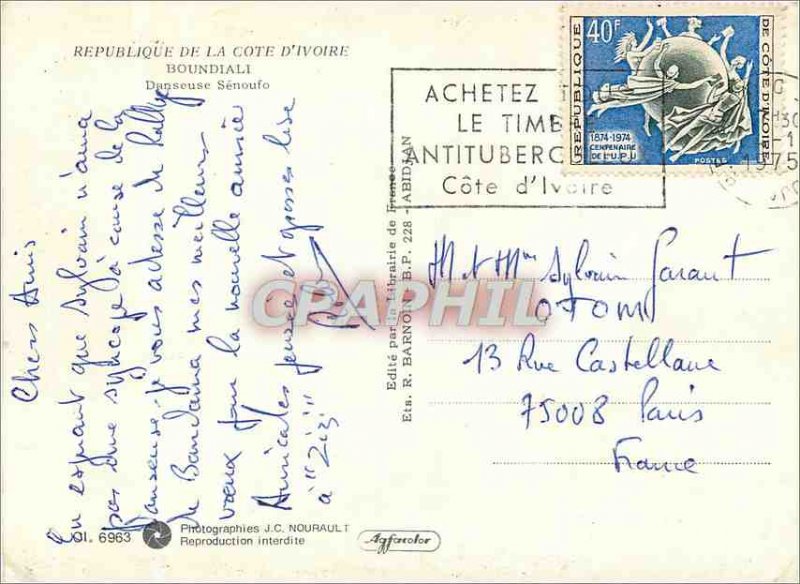 REPUBLIQUE DE LA COTE D'IVOIRE
BOUNDIALI
Danseuse Sénoufo
Chers Amis
En espérant que Sylvain n'aura
pas une syncope à cause de la
danseuse, je vous adresse du Rallye
du Bandama mes meilleurs
voeux pour la nouvelle année
Amicales pensées et grosses bise
à "Zizi"
CI. 6963
Photographies J.C. NOURAULT
Reproduction interdite
Agfacolor
Edité par la Librairie de France
Ets. R. BARNOIN B.P. 228 - ABIDJAN
ACHETEZ
LE TIMBRE
ANTITUBERC
Côte d'Ivoire
40F
REPUBLIQUE
DE CÔTE D'IVOIRE
1874-1974
CENTENAIRE
DE L'U.P.U
POSTES
1975
M et Mme Sylvain Garant
OTOM
13 Rue Castellane
75008 Paris
France
CRAPHIL